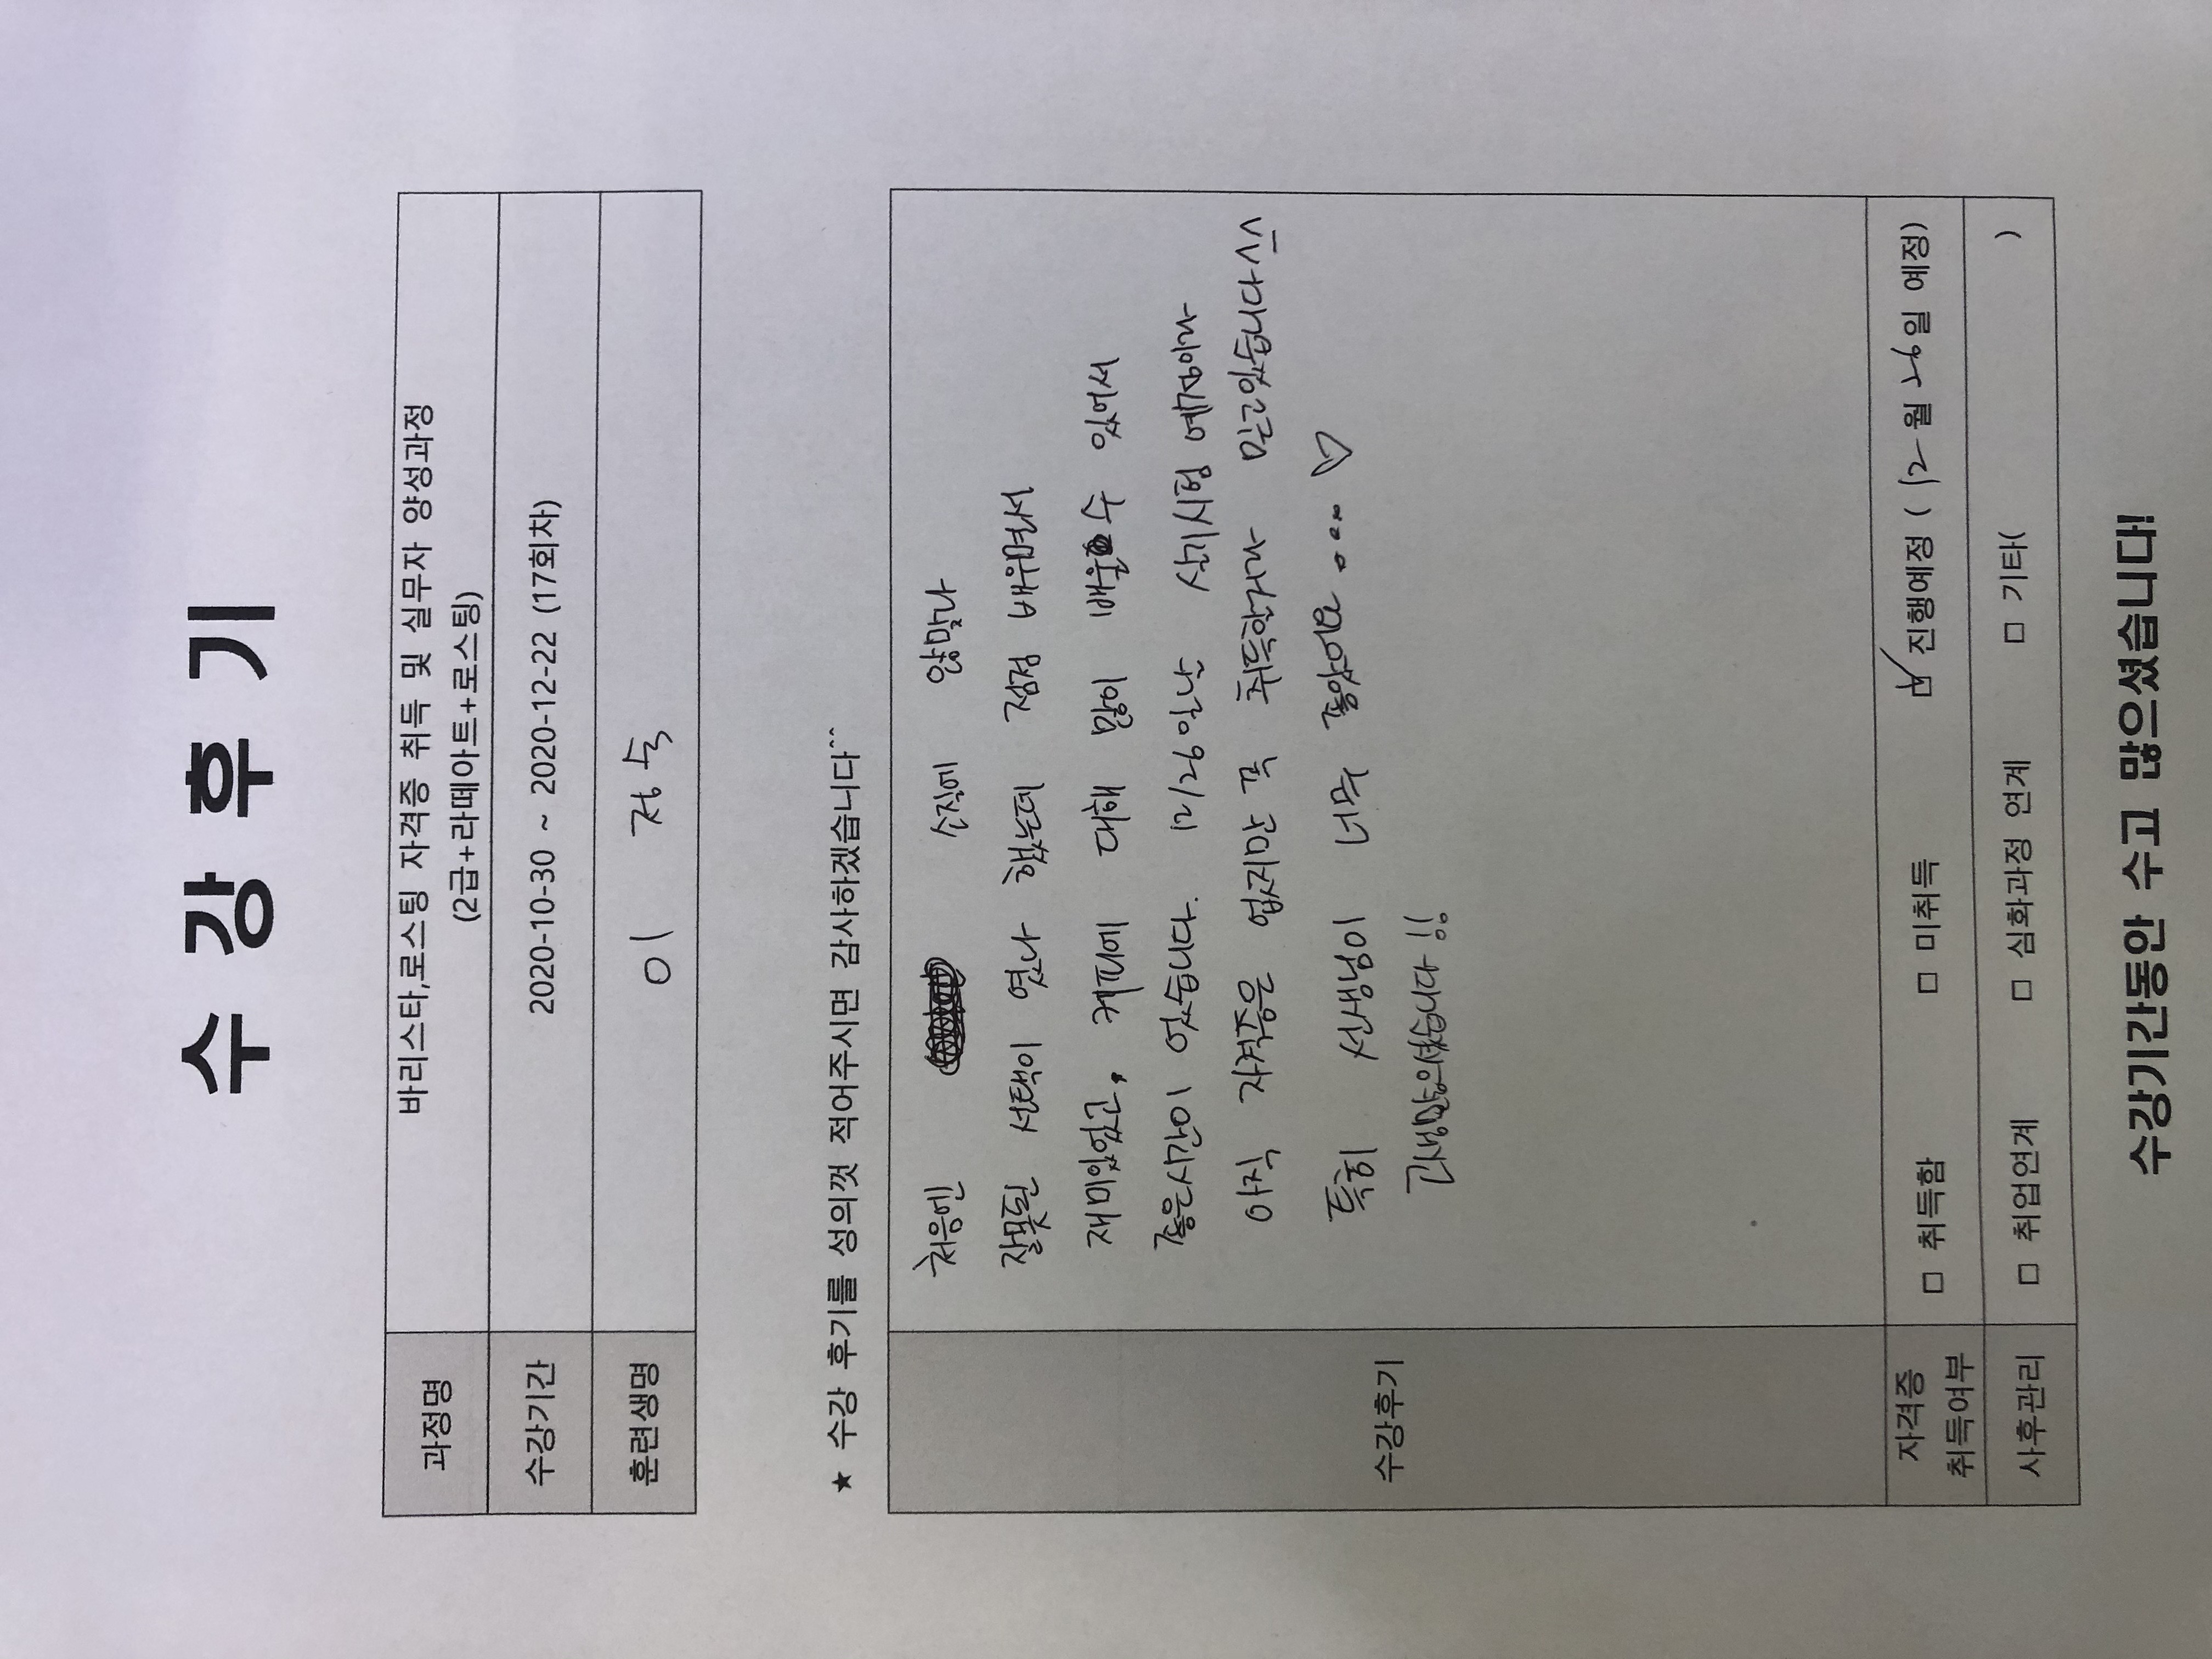 수 강 후 기
과정명
바리스타,로스팅 자격증 취득 및 실무자 양성과정
(2급+라떼아트+로스팅)
수강기간
2020-10-30 ~ 2020-12-22 (17회차)
훈련생명
이
★ 수강 후기를 성의껏 적어주시면 감사하겠습니다^^
수강후기
처음엔 손질에 안맞나
잘못된 선택이 였나 했는데 점점 배우면서
재미있었고, 커피에 대해 많이 배울 수 있어서
좋은시간이 었습니다. 12/26일날 실기시험 예정이라
아직 자격증은 없지만 꼭 취득할거라 믿고있습니다 ^^
특히 선생님이 너무 좋았어요 .... ♡
!!
자격증
취득여부
□ 취득함 □ 미취득 ☑ 진행예정 ( 12월 26일 예정)
사후관리
□ 취업연계 □ 심화과정 연계 □ 기타( )
수강기간동안 수고 많으셨습니다!